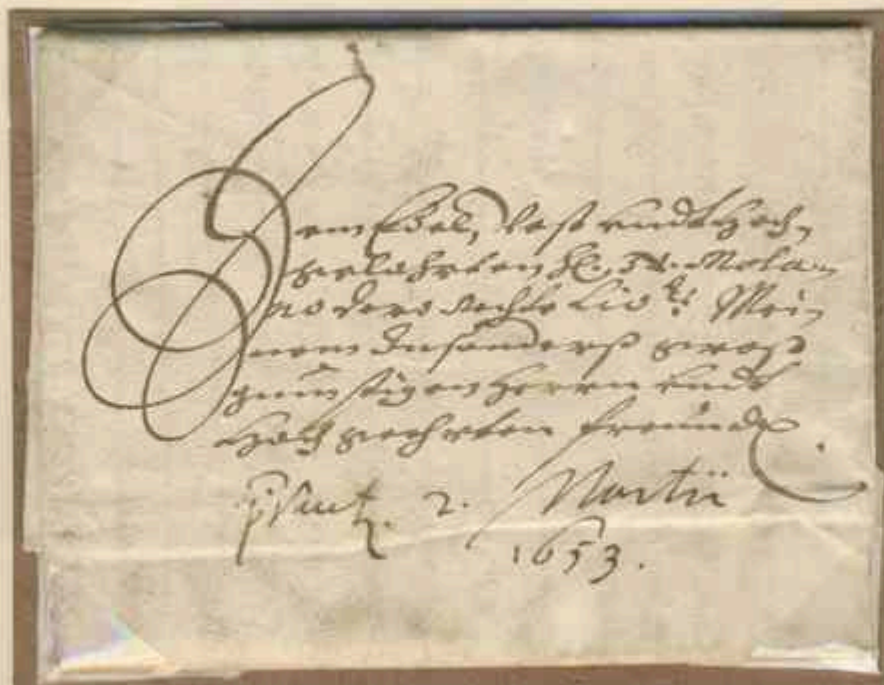 Dem Edel, Vest undt Hoch-
gelahrten H.
der Rechte Lic.ᵗ Mei-
nem Insonderß groß
günstigen Herrn undt
Hoch geehrten Freundt.
2. Martii
1653.